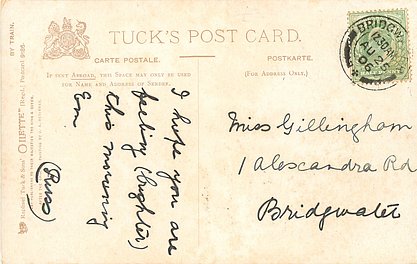 TUCK'S POST CARD.
CARTE POSTALE.
POSTKARTE.
IF SENT ABROAD, THIS SPACE MAY ONLY BE USED
FOR NAME AND ADDRESS OF SENDER.
(FOR ADDRESS ONLY.)
BY TRAIN.
Raphael Tuck & Sons' "OILETTE" [Regd.] Postcard
I hope you are
feeling (brighter)
this morning
Em
(Russ)
BRIDGW
AU 2
06
Miss Gillingham
1 Alexcandra Rd
Bridgwater